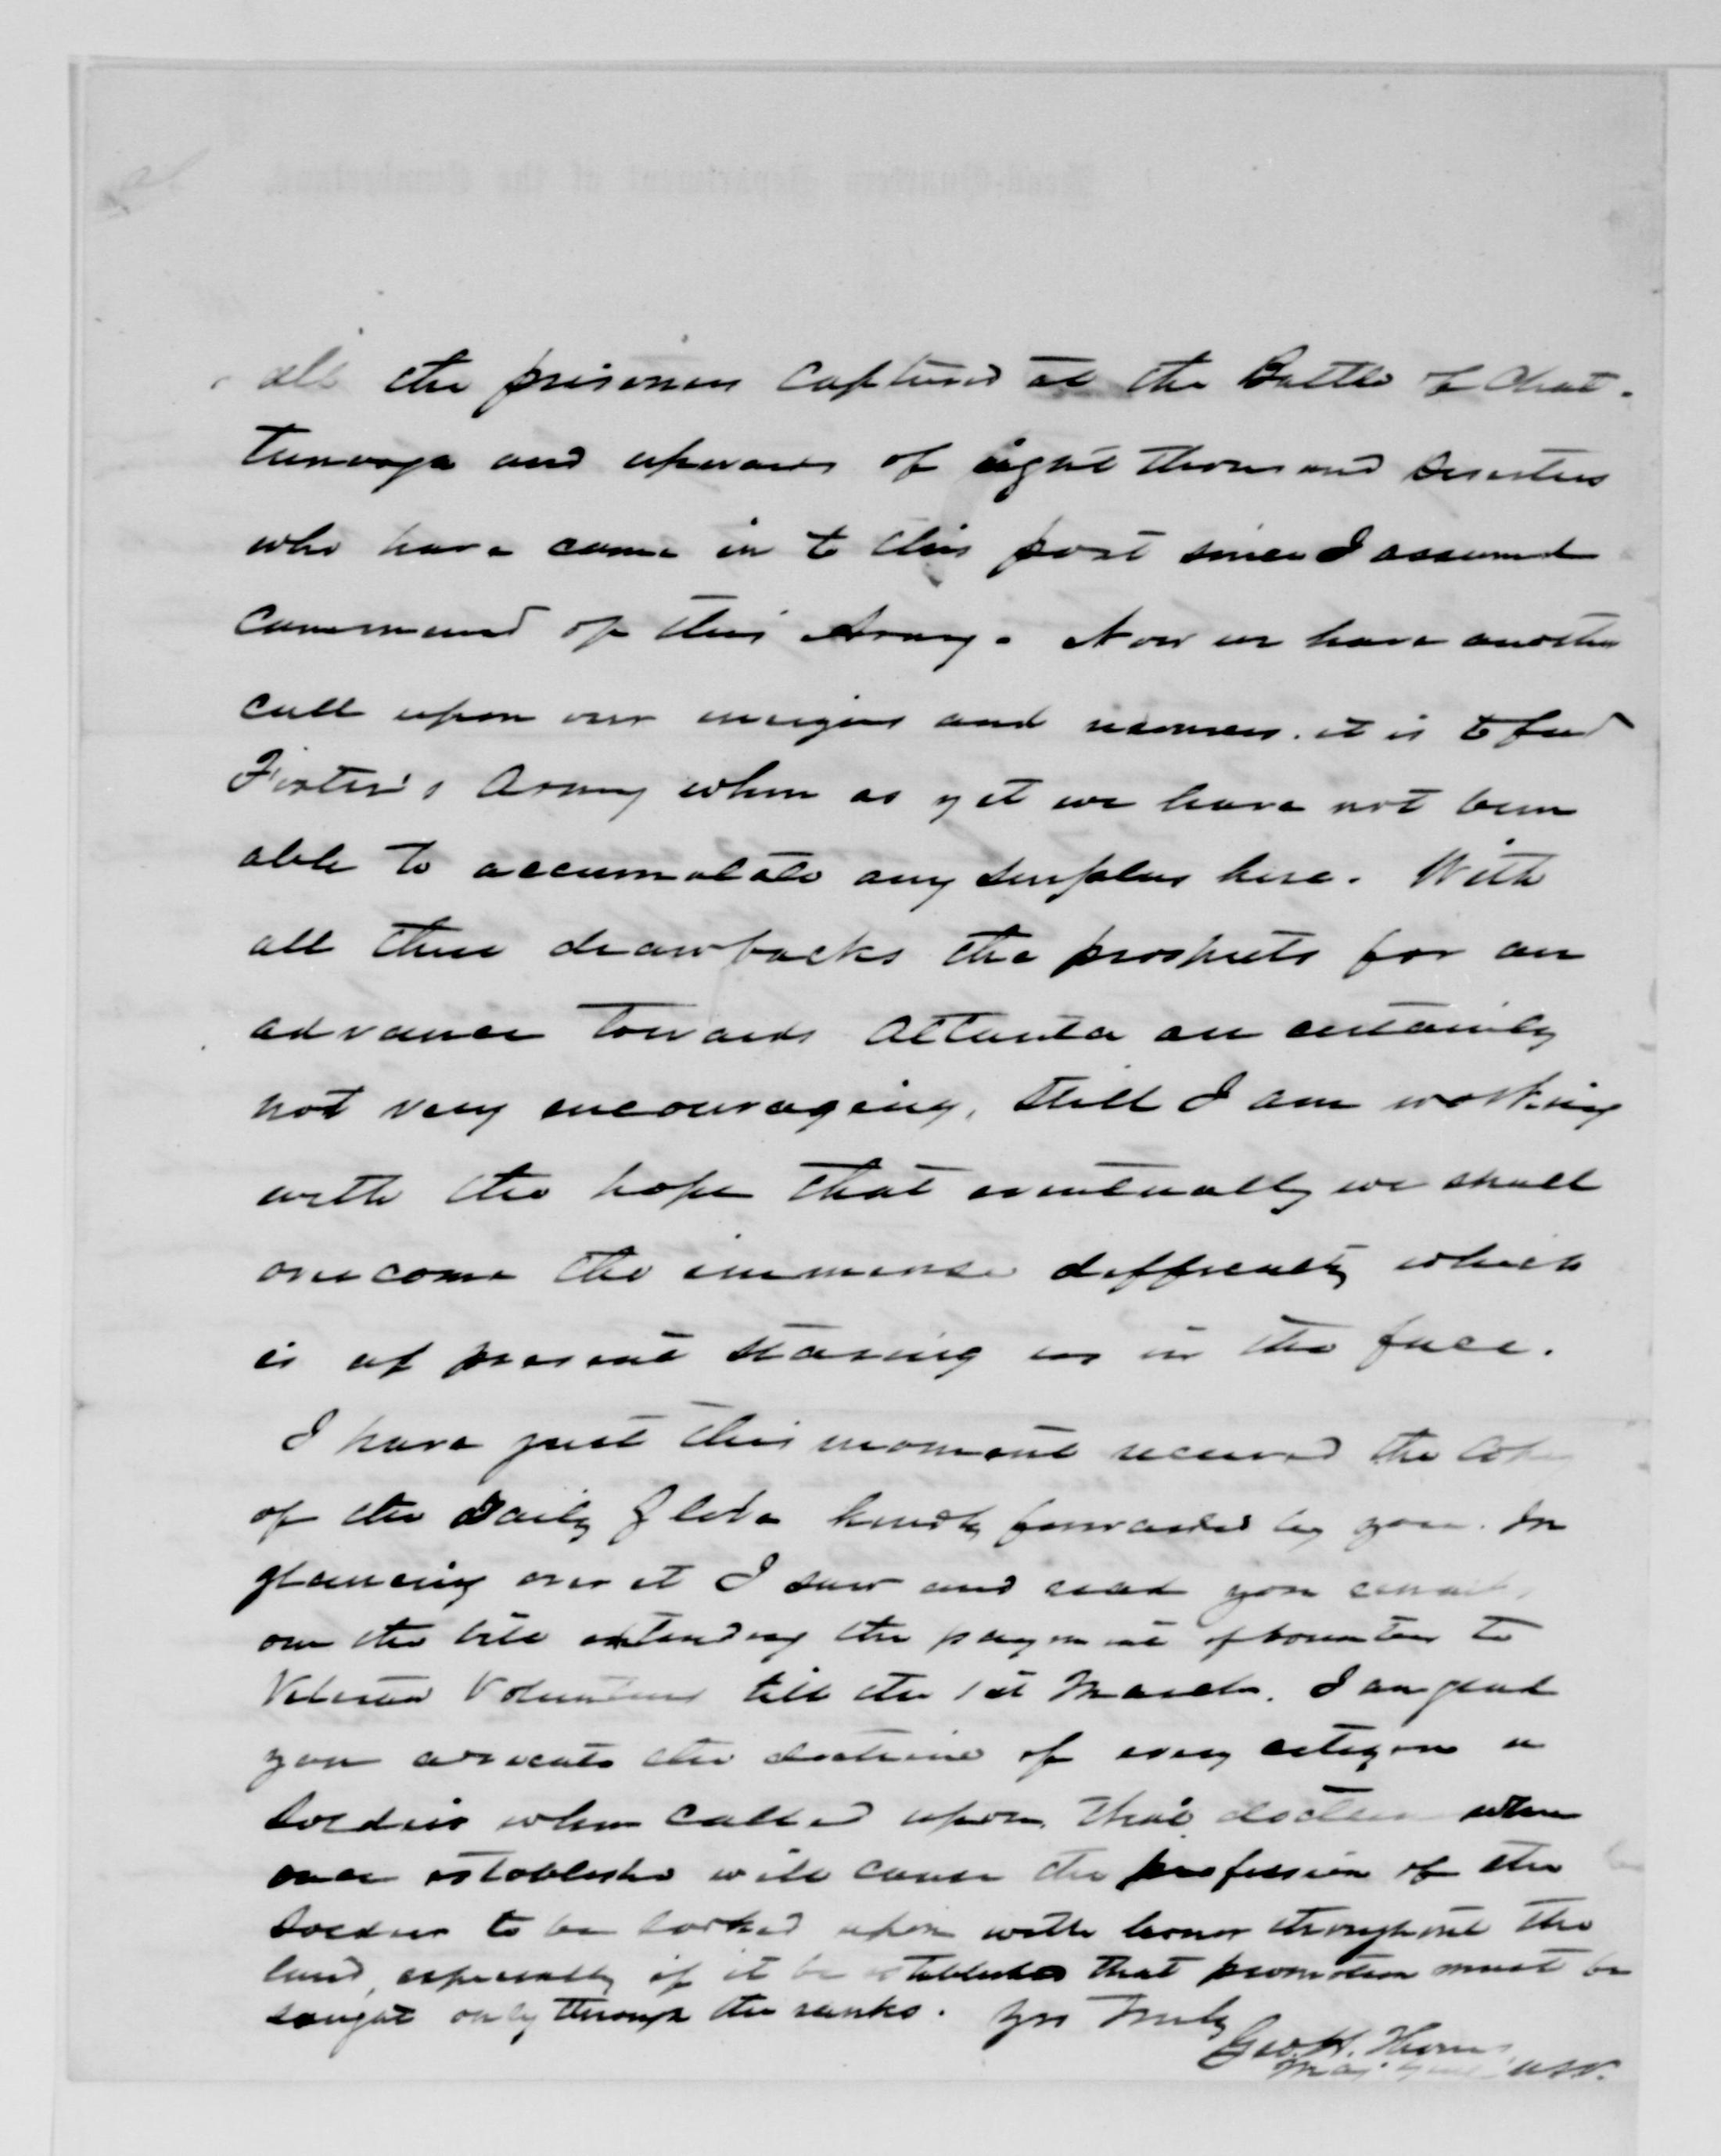 all the prisoners captured at the Battle of Chat-
tanooga and upwards of eight thousand deserters
who have come in to this post since I assumed
command of this Army. Now we have another
call upon our energies and resources. it is to feed
Foster's Army when as yet we have not been
able to accumulate any surplus here. With
all these drawbacks the prospects for an
advance towards Atlanta are certainly
not very encouraging, still I am working
with the hope that eventually we shall
overcome the immense difficulty which
is at present staring us in the face.
I have just this moment received the copy
of the Daily Globe kindly forwarded by you. In
glancing over it I saw and read your remarks
on the bill extending the payment of bounties to
Veteran Volunteers till the 1st March. I am glad
you advocate the doctrine of every citizen a
soldier when called upon. That doctrine when
once established will cause the profession of the
soldier to be looked upon with honor throughout the
land, especially if it be established that promotion must be
sought only through the ranks. Yrs Truly
Geo. H. Thomas
Maj. Genl USV.